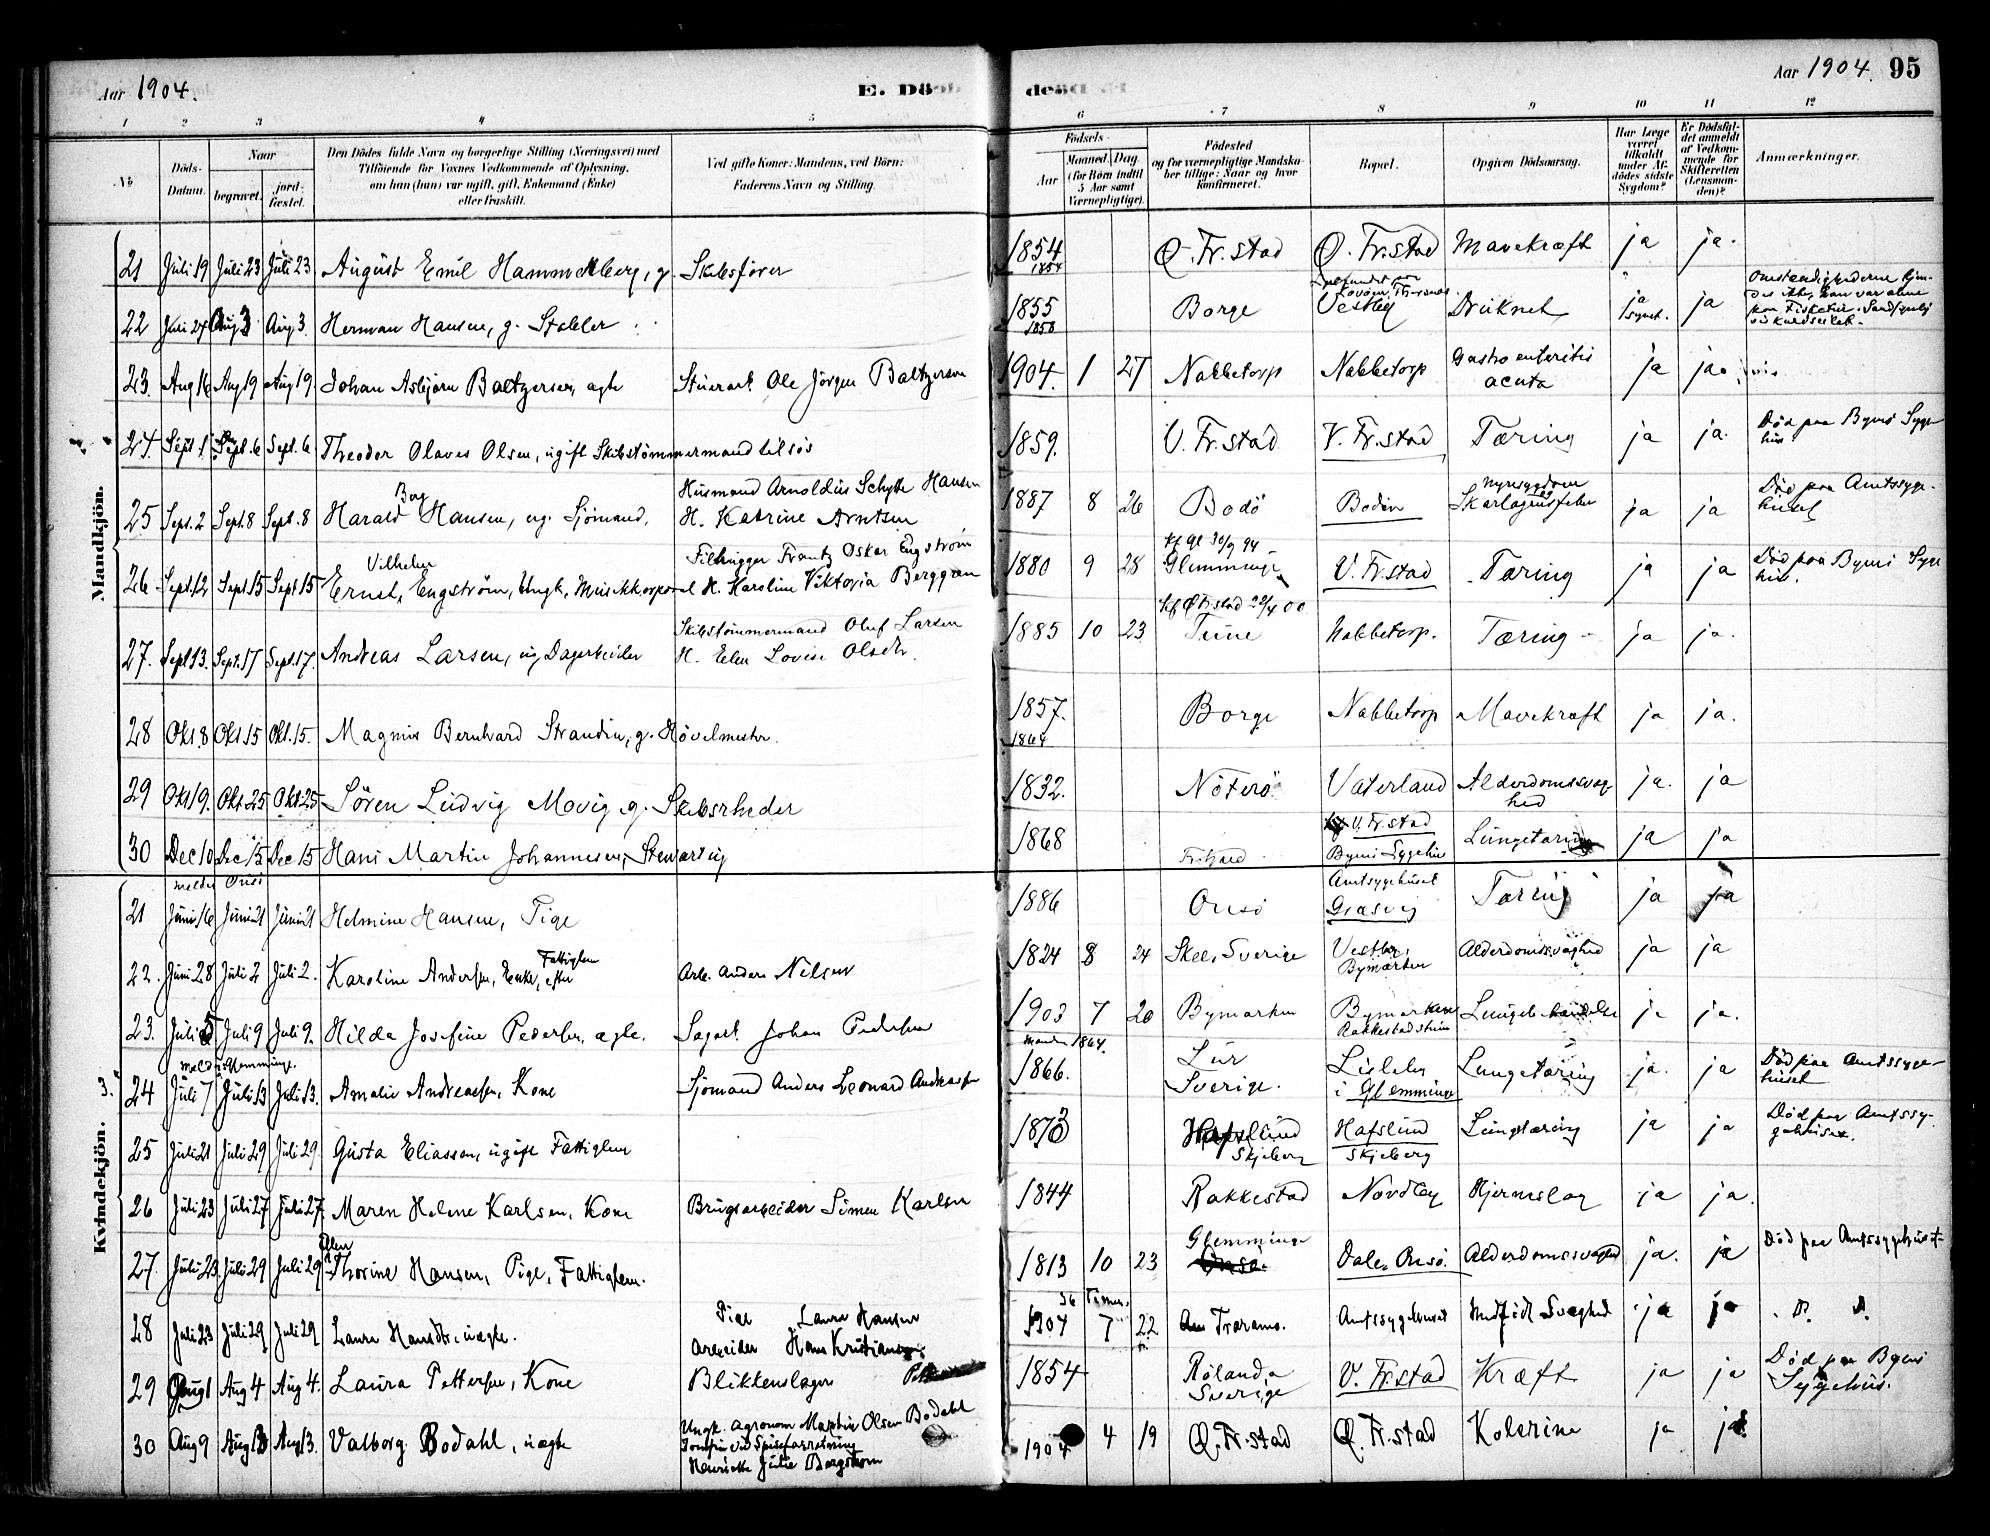 Aar 1904. E. Döde Aar 1904. 95
1 2 3 4 5 6 7 8 9 10 11 12
No
Döds-Datum.
Naar
begravet. jord-fæstet.
Den Dödes fulde Navn og borgerlige Stilling (Næringsvei) med
Tilföiende for Voxnes Vedkommende af Oplysning,
om han (hun) var ugift, gift, Enkemand (Enke)
eller fraskilt.
Ved gifte Koner: Mandens, ved Börn:
Faderens Navn og Stilling
Födsels-
Aar Maaned. Dag.
(for Börn indtil 5 Aar samt Værnepligtige).
Födested
og for værnepligtige Mandska-
ber tillige: Naar og hvor
konfirmeret.
Bopæl.
Opgiven Dödsaarsag.
Har Læge været tilkaldt under Af-dödes sidste Sygdom?
Er Dödsfal-det anmeldt af Vedkom-mende for Skifteretten (Lensman-den)?
Anmærkninger.
Mandkjön.
21 Juli 19 Juli 23 Juli 23 August Emil Hammelberg, g. Skibsfører 1854 1854 Ø. Fr.stad Ø. Fr.stad Mavekræft ja ja.
22 Juli 24 Aug 3 Aug 3. Herman Hansen, g. Stabler 1855 1858 Borge Vestby Druknet ja synet. ja
23. Aug 16 Aug 19 Aug 19. Johan Asbjørn Baltzersen, ægte Stuerarb. Ole Jörgen Baltzersen 1904. 1 27 Nabbetorp Nabbetorp Gastro enteritis acuta ja ja.
24. Sept 1 Sept. 6 Sept. 6 Theodor Olaves Olsen, ugift Skibstømmermand tilsøs 1859. V. Fr.stad V. Fr.stad Tæring ja ja. Död paa Byens Sygehus
25 Sept. 2 Sept. 8 Sept. 8 Harald Borg Hansen, ug. Sjömand, Husmand Arnoldus Schytte Hansen
H. Katrine Arntsen 1887 8 26 Bodö Bodin Nyresygdom Skarlagensfeber ja ja Död paa Amtssygehuset
26 Sept. 12 Sept 15 Sept 15 Ernst Vilhelm Engström, Ungk., Musikkorporal Filhugger Frantz Oskar Engström
H. Karoline Viktoria Berggren 1880 9 28 kf Gl 30/9 94 Glemminge V. Fr.stad Tæring ja ja Död paa Byens Sygehus.
27. Sept 13. Sept. 17 Sept. 17. Andreas Larsen, ug. Dagarbeider Skibstömmermand Oluf Larsen
H. Elen Lovise Olsdtr. 1885 10 23 kf Ø Fr.stad 22/4 00 Tune Nabbetorp. Tæring ja ja.
28 Okt. 8 Okt. 15 Okt. 15. Magnus Bernhard Strandin, g. Hövelmester. 1857. 1864 Borge Nabbetorp Mavekræft ja ja.
29 Okt 19. Okt. 25 Okt 25 Sören Ludvig Movig g. Skibsrheder 1832. Nöterö Vaterland Alderdomssvaghed ja. ja
30 Dec 10 Dec 15 Dec 15 Hans Martin Johannesen, Stewart ug 1868 Fr.hard V. Fr.stad Byens Sygehus Lungetæring ja ja
Kvindekjön.
meldt Onsö
21 Juni 16 Juni 21 Juni 21 Helmine Hansen, Pige 1886 Onsö Amtsygehuset Græsvig Tæring ja ja
22. Juni 28 Juli 2 Juli 2. Karoline Andersen, Enke, efter Fattiglem Arb. Anders Nilsen 1824 8 24 Skee, Sverige Bymarken Alderdomssvaghed ja ja
23. Juli 5 Juli 9 Juli 9. Hilda Josefine Pedersen, ægte. Sagarb. Johan Pedersen 1903 7 20 Bymarken Bymarken Rakkestadstuen ja ja.
meldt Glemminge.
24 Juli 7 Juli 13 Juli 13. Amalie Andreassen, Kone Sjömand Anders Leonard Andreassen Manden 1864. 1866. Lur Sverige. Lisleby i Glemminge Lungetæring ja. ja Död paa Amtssygehuset
25 Juli 21 Juli 29 Juli 29 Gusta Eliassen, ugift Fattiglem 1873 Hafslund Skjeberg Hafslund Skjeberg Lungetæring ja ja Död paa Amtssygehuset.
26 Juli 23 Juli 27 Juli 27. Maren Helene Karlsen, Kone Brugsarbeider Simen Karlsen 1844 Rakkestad Nordby Hjerneslag ja ja.
27. Juli 23. Juli 29 Juli 29 Ellen Thorine Hansen, Pige, Fattiglem. 1813 10 23 Glemminge Onsö. Dale, Onsö. Alderdomssvaghed ja. ja Död paa Amtssygehuset
28 Juli 23 Juli 29 Juli 29 Laura Hansdtr. uægte. Pige Laura Hansen
Arbeider Hans Kristiansen 36 Timer. 1904 7 22 Amtssygehuset Medfödt Svaghed ja ja
29 Aug 1 Aug 4 Aug 4. Laura Pettersen, Kone Blikkenslager 1854 Rölanda Sverige V. Fr.stad Kræft ja ja Död paa Byens Sygehus.
30 Aug 9 Aug 13 Aug 13. Valborg Bodahl, uægte Ungk. Agronom Martin Olsen Bodahl
Jomfru ved Spiseforretning
Henriette Julie Bergstrom 1904 4 19 Ø. Fr.stad Ø. Fr.stad Kolerine ja ja